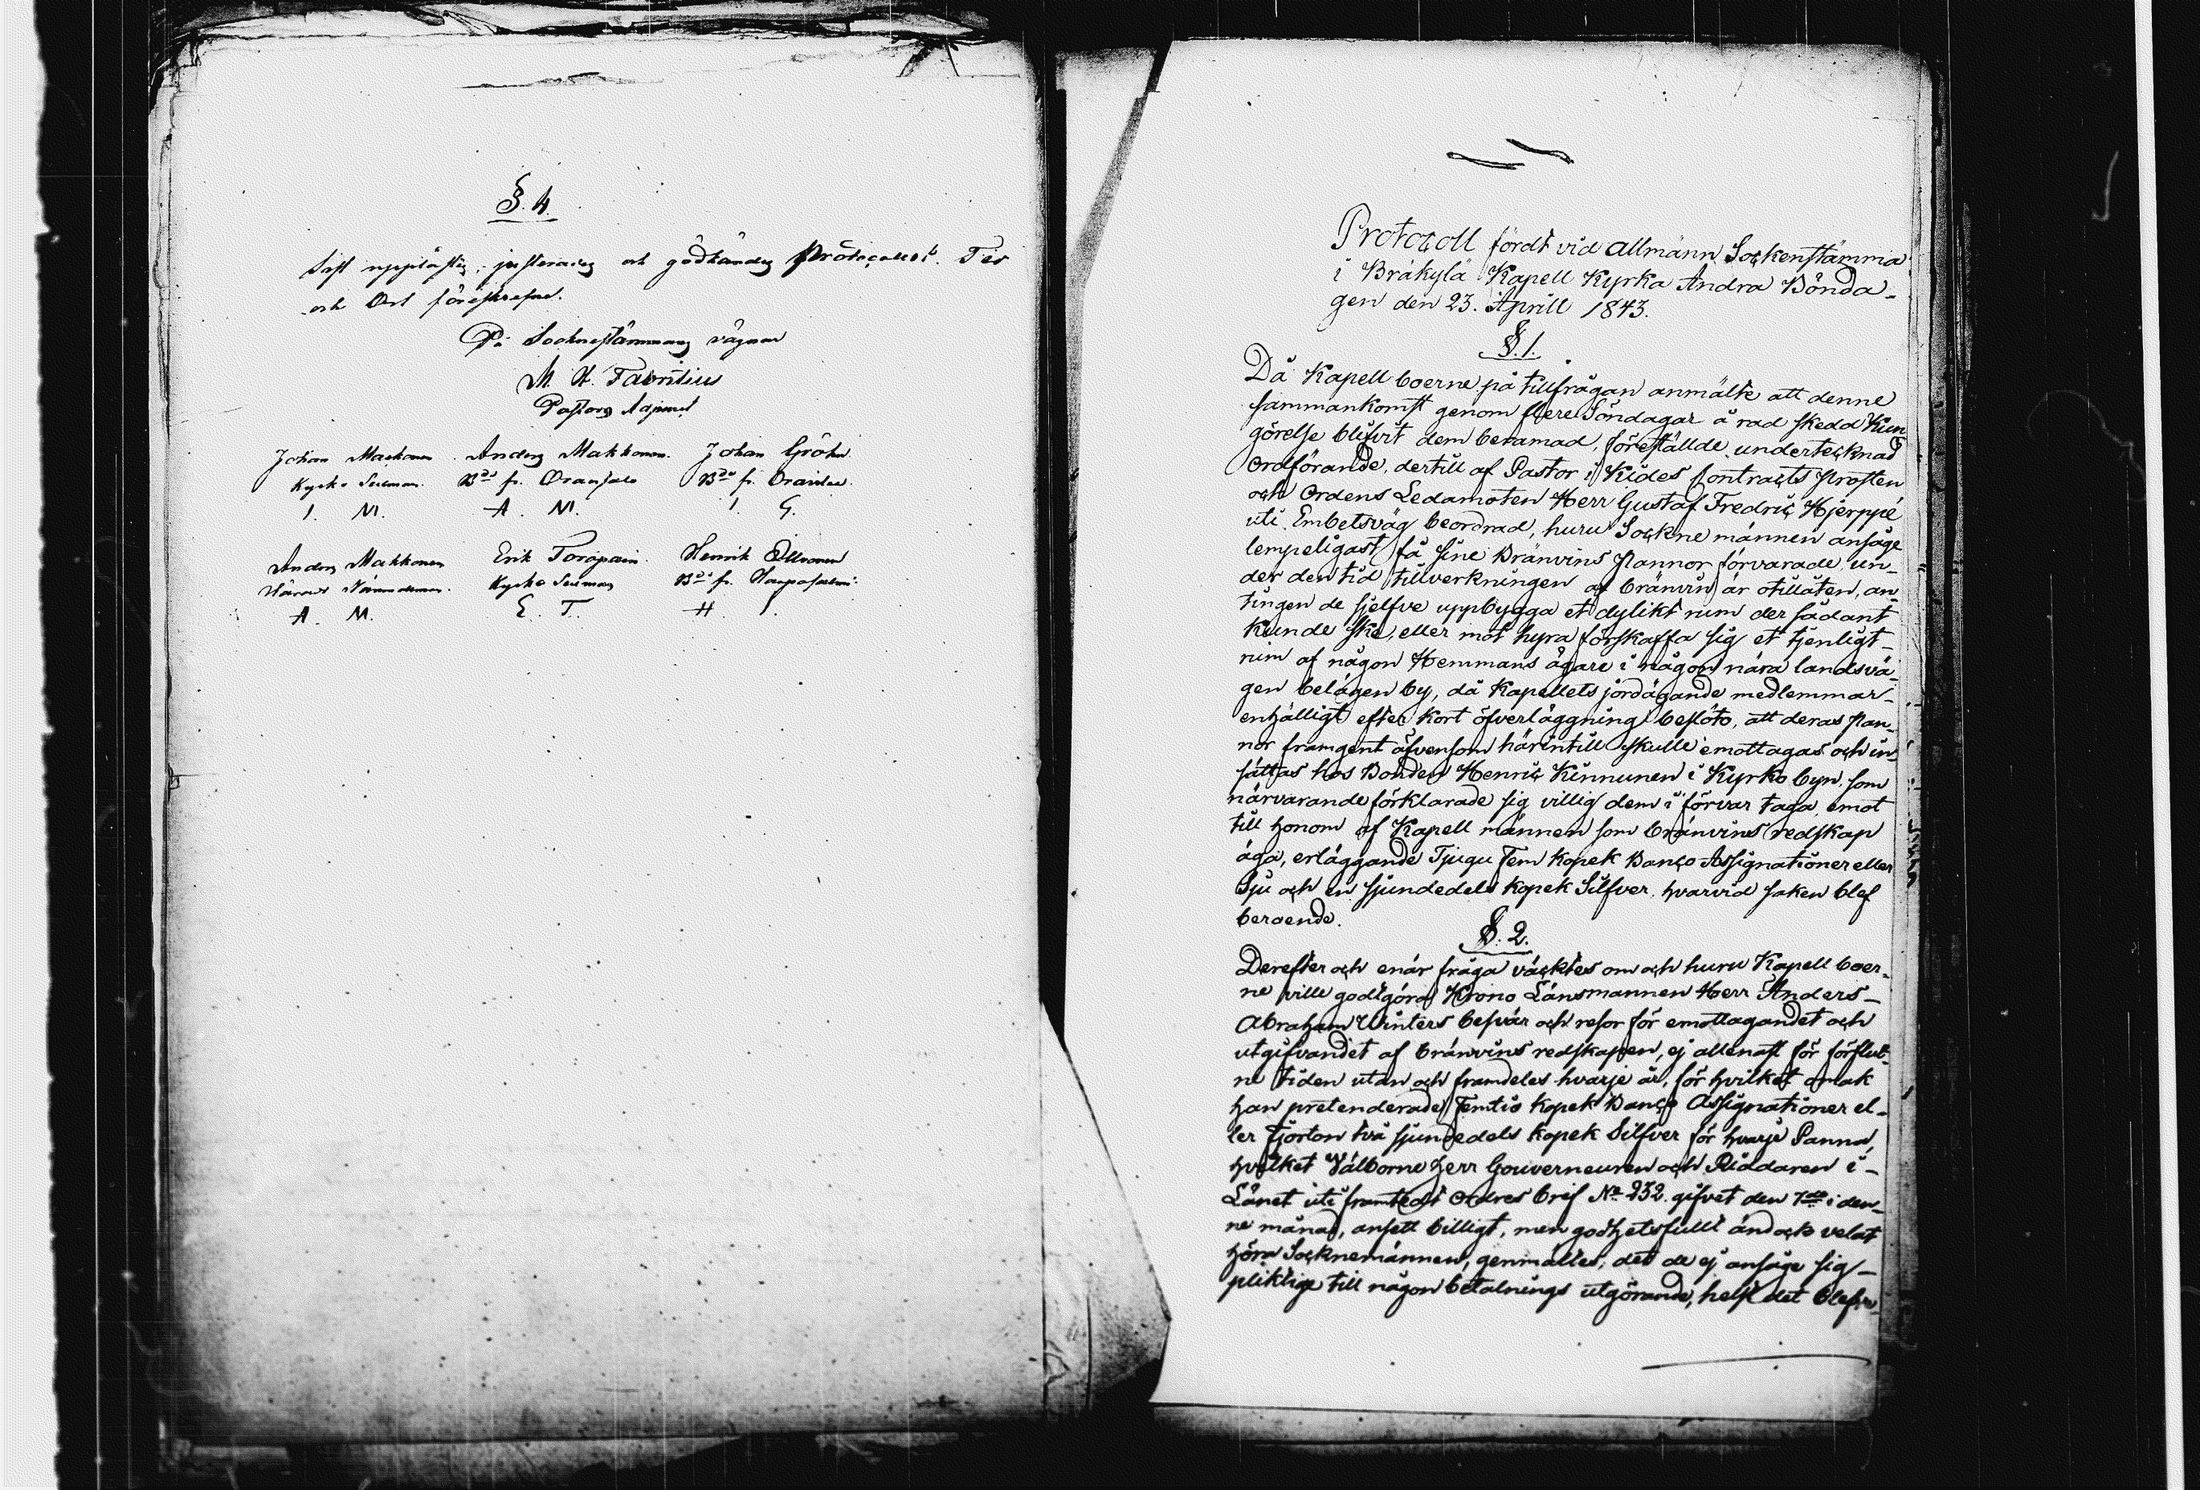 §. 4.
Sist upplästes, justerades och godkändes Protocollet. Tid
och Ort föreskrefne.
På Socknestämmans vägnar
M. H. Fabritius
Pastors Adjunct
Johan Makkonen Anders Makkonen Johan Gröhn
Kyrko Sexman. Bde fr. Oravisalo Bde fr.
I. M. A. M. I. G.
Anders Makkonen Erik Toropain Henrik
Härads Nämndeman. Kyrko Sexman Bde fr.
A. M. E. T. H.
Protocoll fördt vid Allmänn Sockenstämma
i Bråkylä Kapell Kyrka Andra Bönda-
gen den 23. Aprill 1843.
§. 1.
Då Kapell boerne på tillfrågan anmälte att denne
sammankomst genom flere Söndagar å rad skedd Kun
görelse blifvit dem beramad, föreställde undertecknad
Ordförande, dertill af Pastor i Kides Contracts Prosten
och Ordens Ledamoten Herr Gustaf Fredric Hjerppe
uti Embetsväg beordrad, huru Sockne männen ansåge
lempeligast få sine Bränvins Pannor förvarade un-
der den tid tillverkningen af bränvin är otillåten, an-
tingen de sjelfve uppbygga et dylikt rum der sådant
kunde ske, eller mot hyra förskaffa sig et tjenligt
rum af någon Hemmans ägare i någon nära landsvä-
gen belägen by, då Kapellets jordägande medlemmar
enhälligt efter kort öfverläggning beslöto, att deras Pan-
nor framgent äfvensom härintill skulle emottagas och in-
sättas hos Bonden Henric Kinnunen i Kyrko byn, som
närvarande förklarade sig villig dem i förvar taga, emot
till honom af Kapell männen som bränvins redskap
äga, erläggande Tjugu Fem Kopek Banco Assignationer eller
Sju och en sjundedels kopek Silfver, hvarvid saken blef
beroende.
§. 2.
Derefter och enär fråga väcktes om och huru Kapell boer-
ne ville godtgöra Krono Länsmannen Herr Anders
Abraham Winters besvär och resor för emottagandet och
utgifvandet af bränvins redskapen, ej allenast för förflut-
ne tiden utan och framdeles hvarje år, för hvilket omak
han pretenderade Femtio Kopek Banco Assignationer el-
ler Fjorton två sjundedels kopek Silfver för hvarje Panna,
hvilket Välborne Herr Gouverneuren och Riddaren i
Länet uti framtedt Ordres bref No 232. gifvet den 7de i den-
ne månad, ansett billigt, men godhetsfullt ändock velat
höra Socknemännen, genmältes, det de ej ansåge sig
pliktige till någon betalnings utgörande, helst det